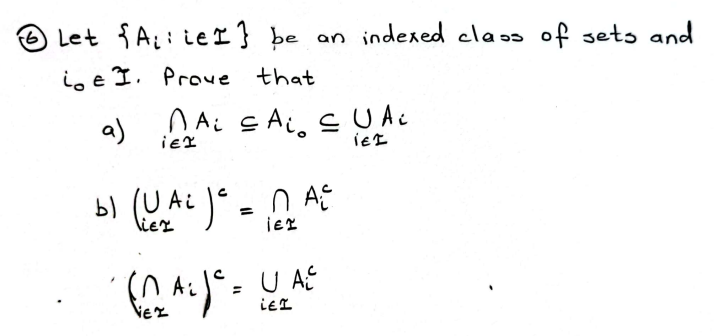 ⑥ Let {Aᵢ : i∈I} be an indexed class of sets and
i₀ ∈ I. Prove that
a) ⋂_{i∈I} Aᵢ ⊆ Aᵢ₀ ⊆ ⋃_{i∈I} Aᵢ
b) (⋃_{i∈I} Aᵢ)ᶜ = ⋂_{i∈I} Aᵢᶜ
(⋂_{i∈I} Aᵢ)ᶜ = ⋃_{i∈I} Aᵢᶜ